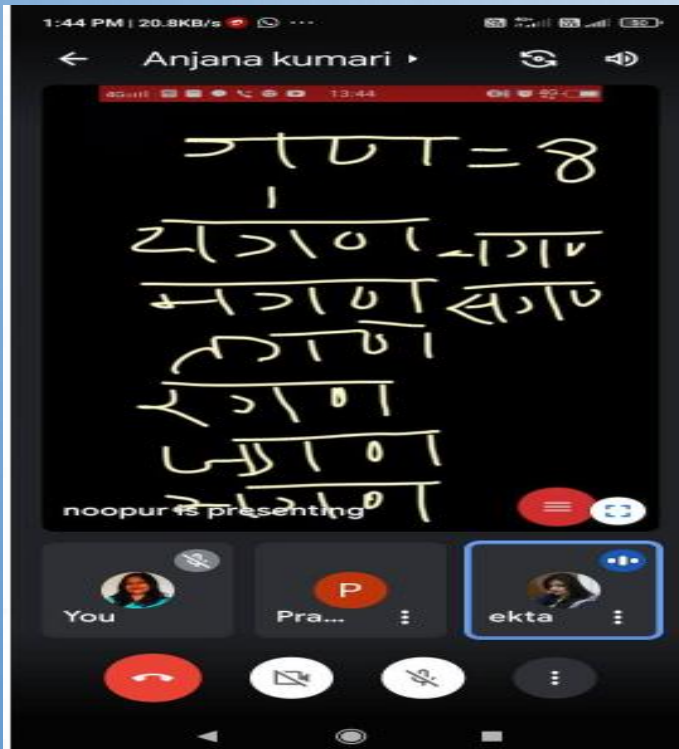 1:44 PM | 20.8KB/s ...
Anjana kumari
4G 13:44 4G
गण = 8
यगण नगण
मगण सगण
तगण
रगण
जगण
noopur is presenting
You Pra... ekta
P